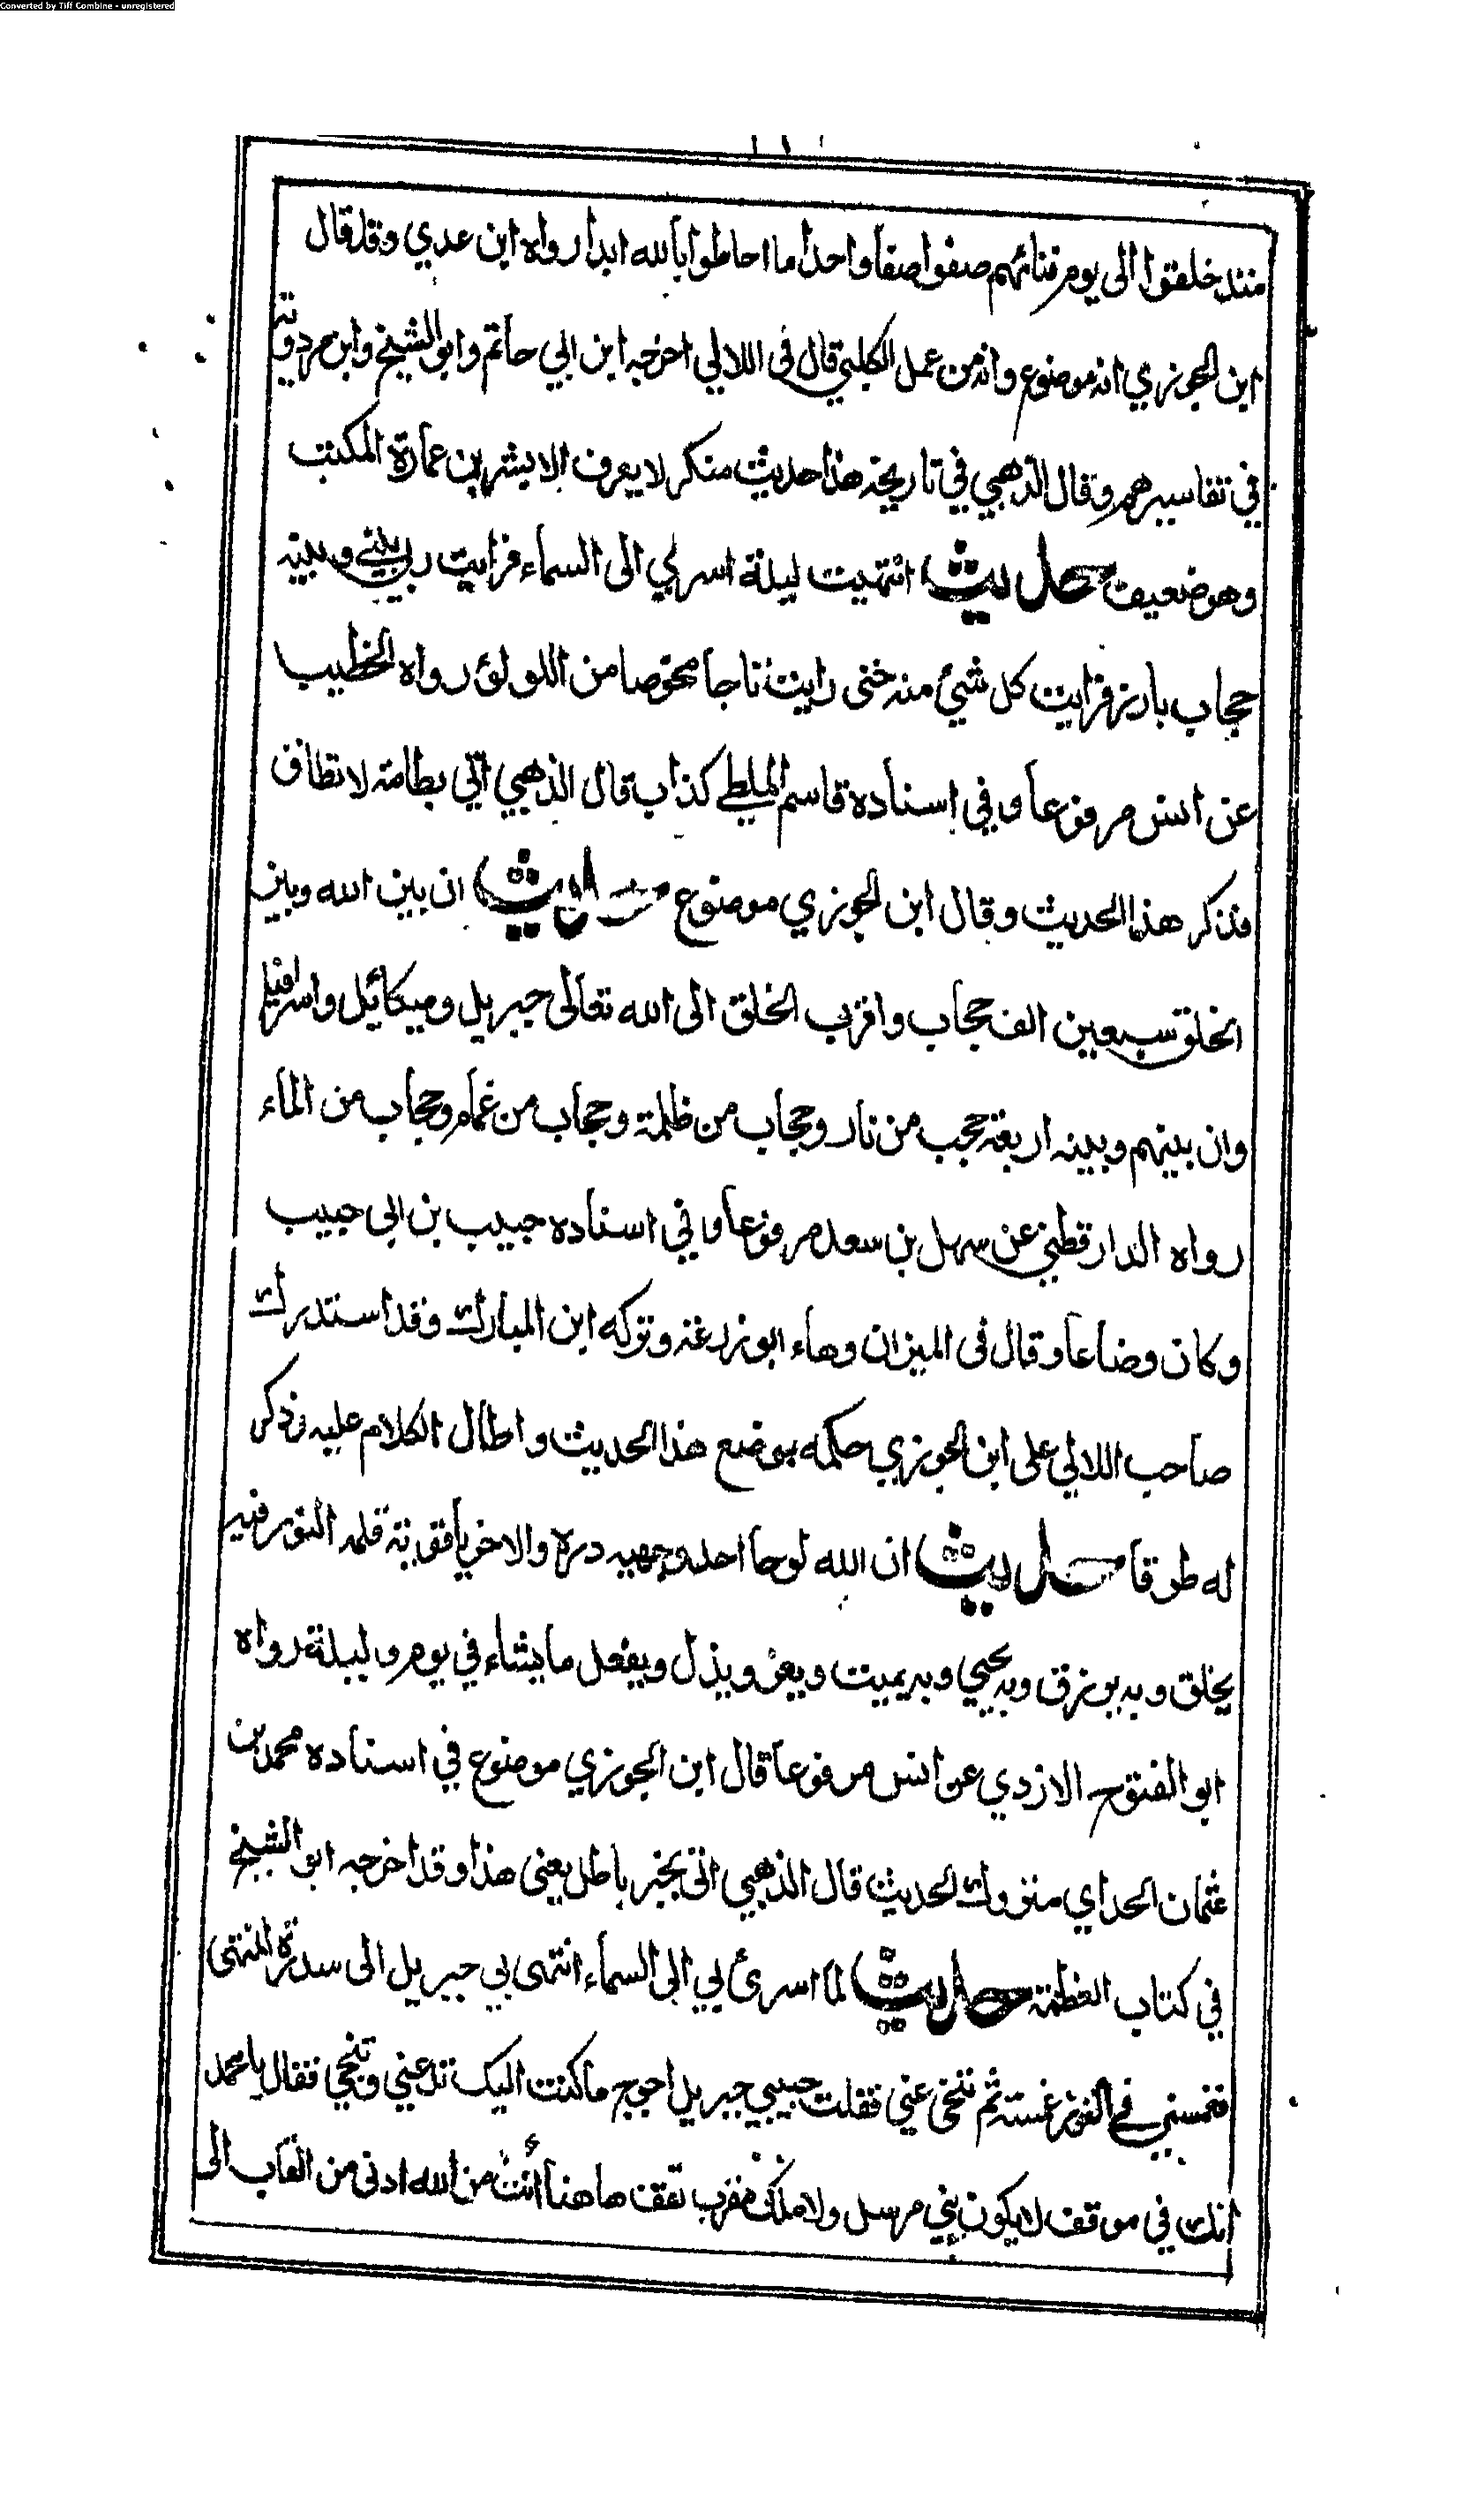 Converted by Tiff Combine - unregistered
منذ خلقوا الى يوم فنائهم صفوا صفا واحدا ما احاطوا بالله ابدا رواه ابن عدي وقد قال
ابن الجوزي انه موضوع وانه من عمل الكلبي قال في اللالي اخرجه ابن ابي حاتم وابو الشيخ وابن مردويه
في تفاسيرهم وقال الذهبي في تاريخه هذا حديث منكر لا يعرف الا بشر بن عمارة المكتب
وهو ضعيف حديث انتهيت ليلة اسري بي الى السماء فرايت ربي بيني وبينه
حجاب بارز فرايت كل شيئ منه حتى رايت تاجا مخوصا من اللولؤ رواه الخطيب
عن انس مرفوعا وفي اسناده قاسم الملطي كذاب قال الذهبي اتي بطامة لا تطاق
فذكر هذا الحديث وقال ابن الجوزي موضوع حديث ان بين الله وبين
الخلق سبعين الف حجاب واقرب الخلق الى الله تعالى جبريل وميكائيل واسرافيل
وان بينهم وبينه اربعة حجب من نار وحجاب من ظلمة وحجاب من غمام وحجاب من الماء
رواه الدارقطني عن سهل بن سعد مرفوعا وفي اسناده حبيب بن ابى حبيب
وكان وضاعا وقال في الميزان وهاه ابو زرعة وتركه ابن المبارك وقد استدرك
صاحب اللالي على ابن الجوزي حكمه بوضع هذا الحديث واطال الكلام عليه وذكر
له طرقا حديث ان الله لوحا احد وجهيه درة والاخر ياقوتة قلمه النور فيه
يخلق وبه يرزق وبه يحيي وبه يميت ويعز ويذل ويفعل ما يشاء في يوم وليلة رواه
ابو الفتوح الازدي عن انس مرفوعا قال ابن الجوزي موضوع في اسناده محمد بن
عثمان الحداي متروك الحديث قال الذهبي اتى بخبر باطل يعنى هذا وقد اخرجه ابو الشيخ
في كتاب العظمة حديث لما اسرئ بي الى السماء انتهى بي جبريل الى سدرة المنتهى
فغمسني في النور غمسة ثم تنحى عني فقلت حبيبي جبريل احوج ما كنت اليك تدعني وتنحي فقال يا محمد
انك في موقف لا يكون نبي مرسل ولا ملك مقرب تقف هاهنا أنت من الله ادنى من القاب الى